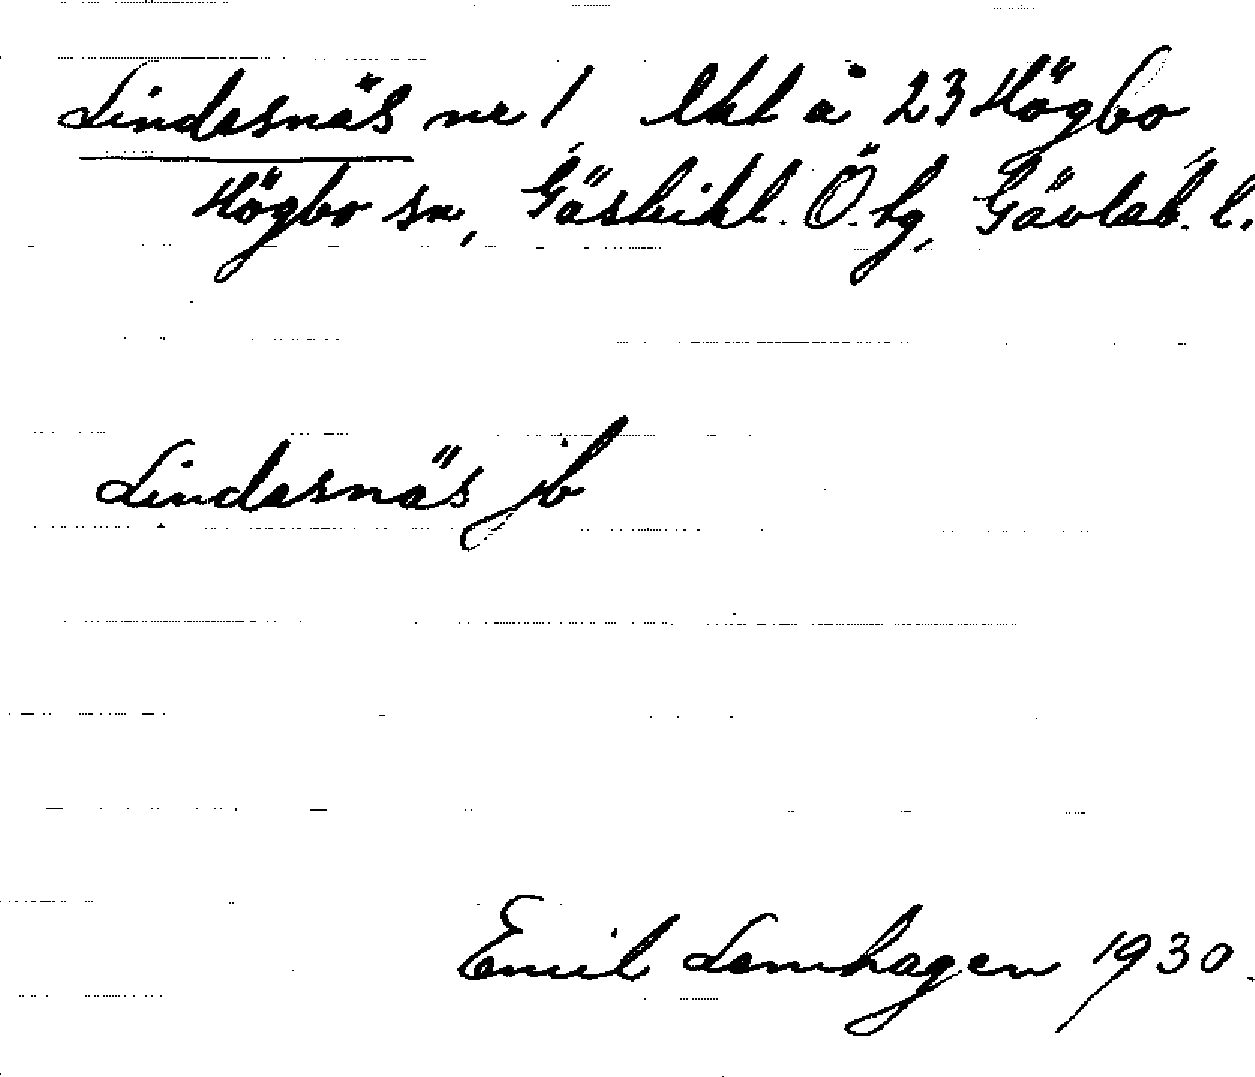 Lindesnäs nr 1 lht å 23 Högbo
Högbo sn, Gästrikl. Ö. tg, Gävleb. l.
Lindesnäs jb
Emil Lennhagen 1930.